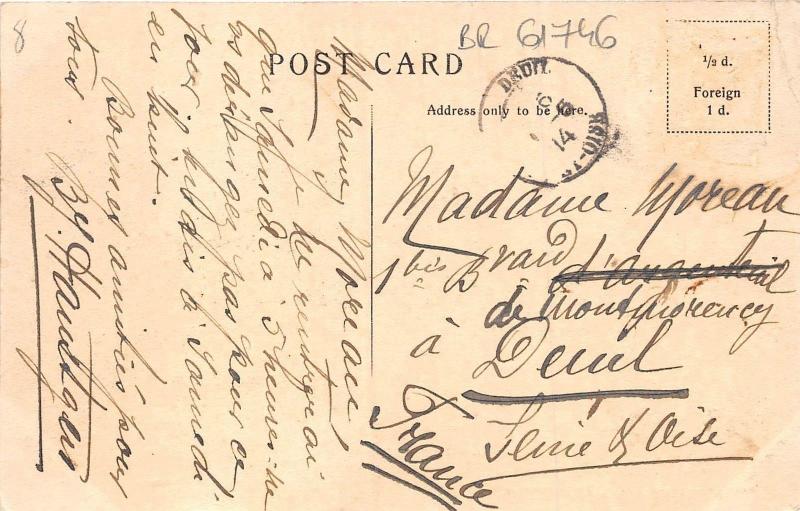 8
BR 61746
POST CARD
Address only to be here.
½ d.
Foreign
1 d.
DEUIL
6
14
ET-OISE
Madame Moreau,
Je ne rentrerai
que Samedi à 5 heures. ne
les déranger pas pour ce
jour jeudi à Samedi
en huit.
Bonnes amitiés pour
tous.
Madame Moreau
1 bis Bvard d'argenteuil
de Montmorency
à Deuil
Seine & Oise
France